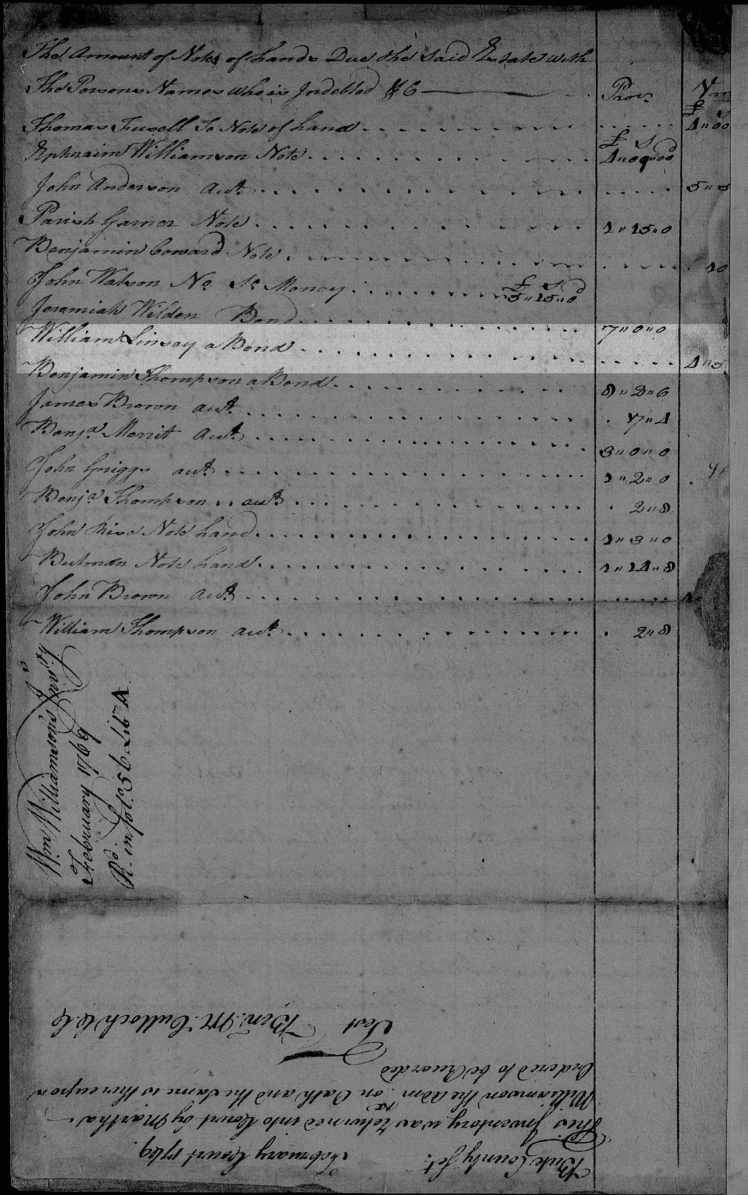 The Amount of Notes of hands Due the said Estate with
The Persons Names who is Indebted &c Prov.
£ S
Thomas Fussell So Note of hand 4"00
£ S d
Ephraim Williamson Note 4"00"00
John Anderson acct. 5"0
Parish Garner Note 1"15"0
Benjamin Coward Note 10
John Watson No. St. Money £ S d
5"15"0
Jeremiah Wilden Bond 7"0"0
William Linsey a Bond 4"0
Benjamin Thompson a Bond 8"3"6
James Brown acct. 17"4
Benja. Merrit acct. 3"0"0
John Griggs acct. 1"2"0
Benja. Thompson acct. 2"8
John Rice Note hand 1"3"0
Butman Note hand 1"14"8
John Brown acct.
William Thompson acct. 2"8
Wm. Williamson's Invy.
February 1769
Rd. in fol. 56 Lib A
Bute County Sct. February Court 1769.
This Inventory was returned into Court by Martha
Williamson the adm.rx on Oath and the same is thereupon
Ordered to be Recorded
Test Ben. McCulloch